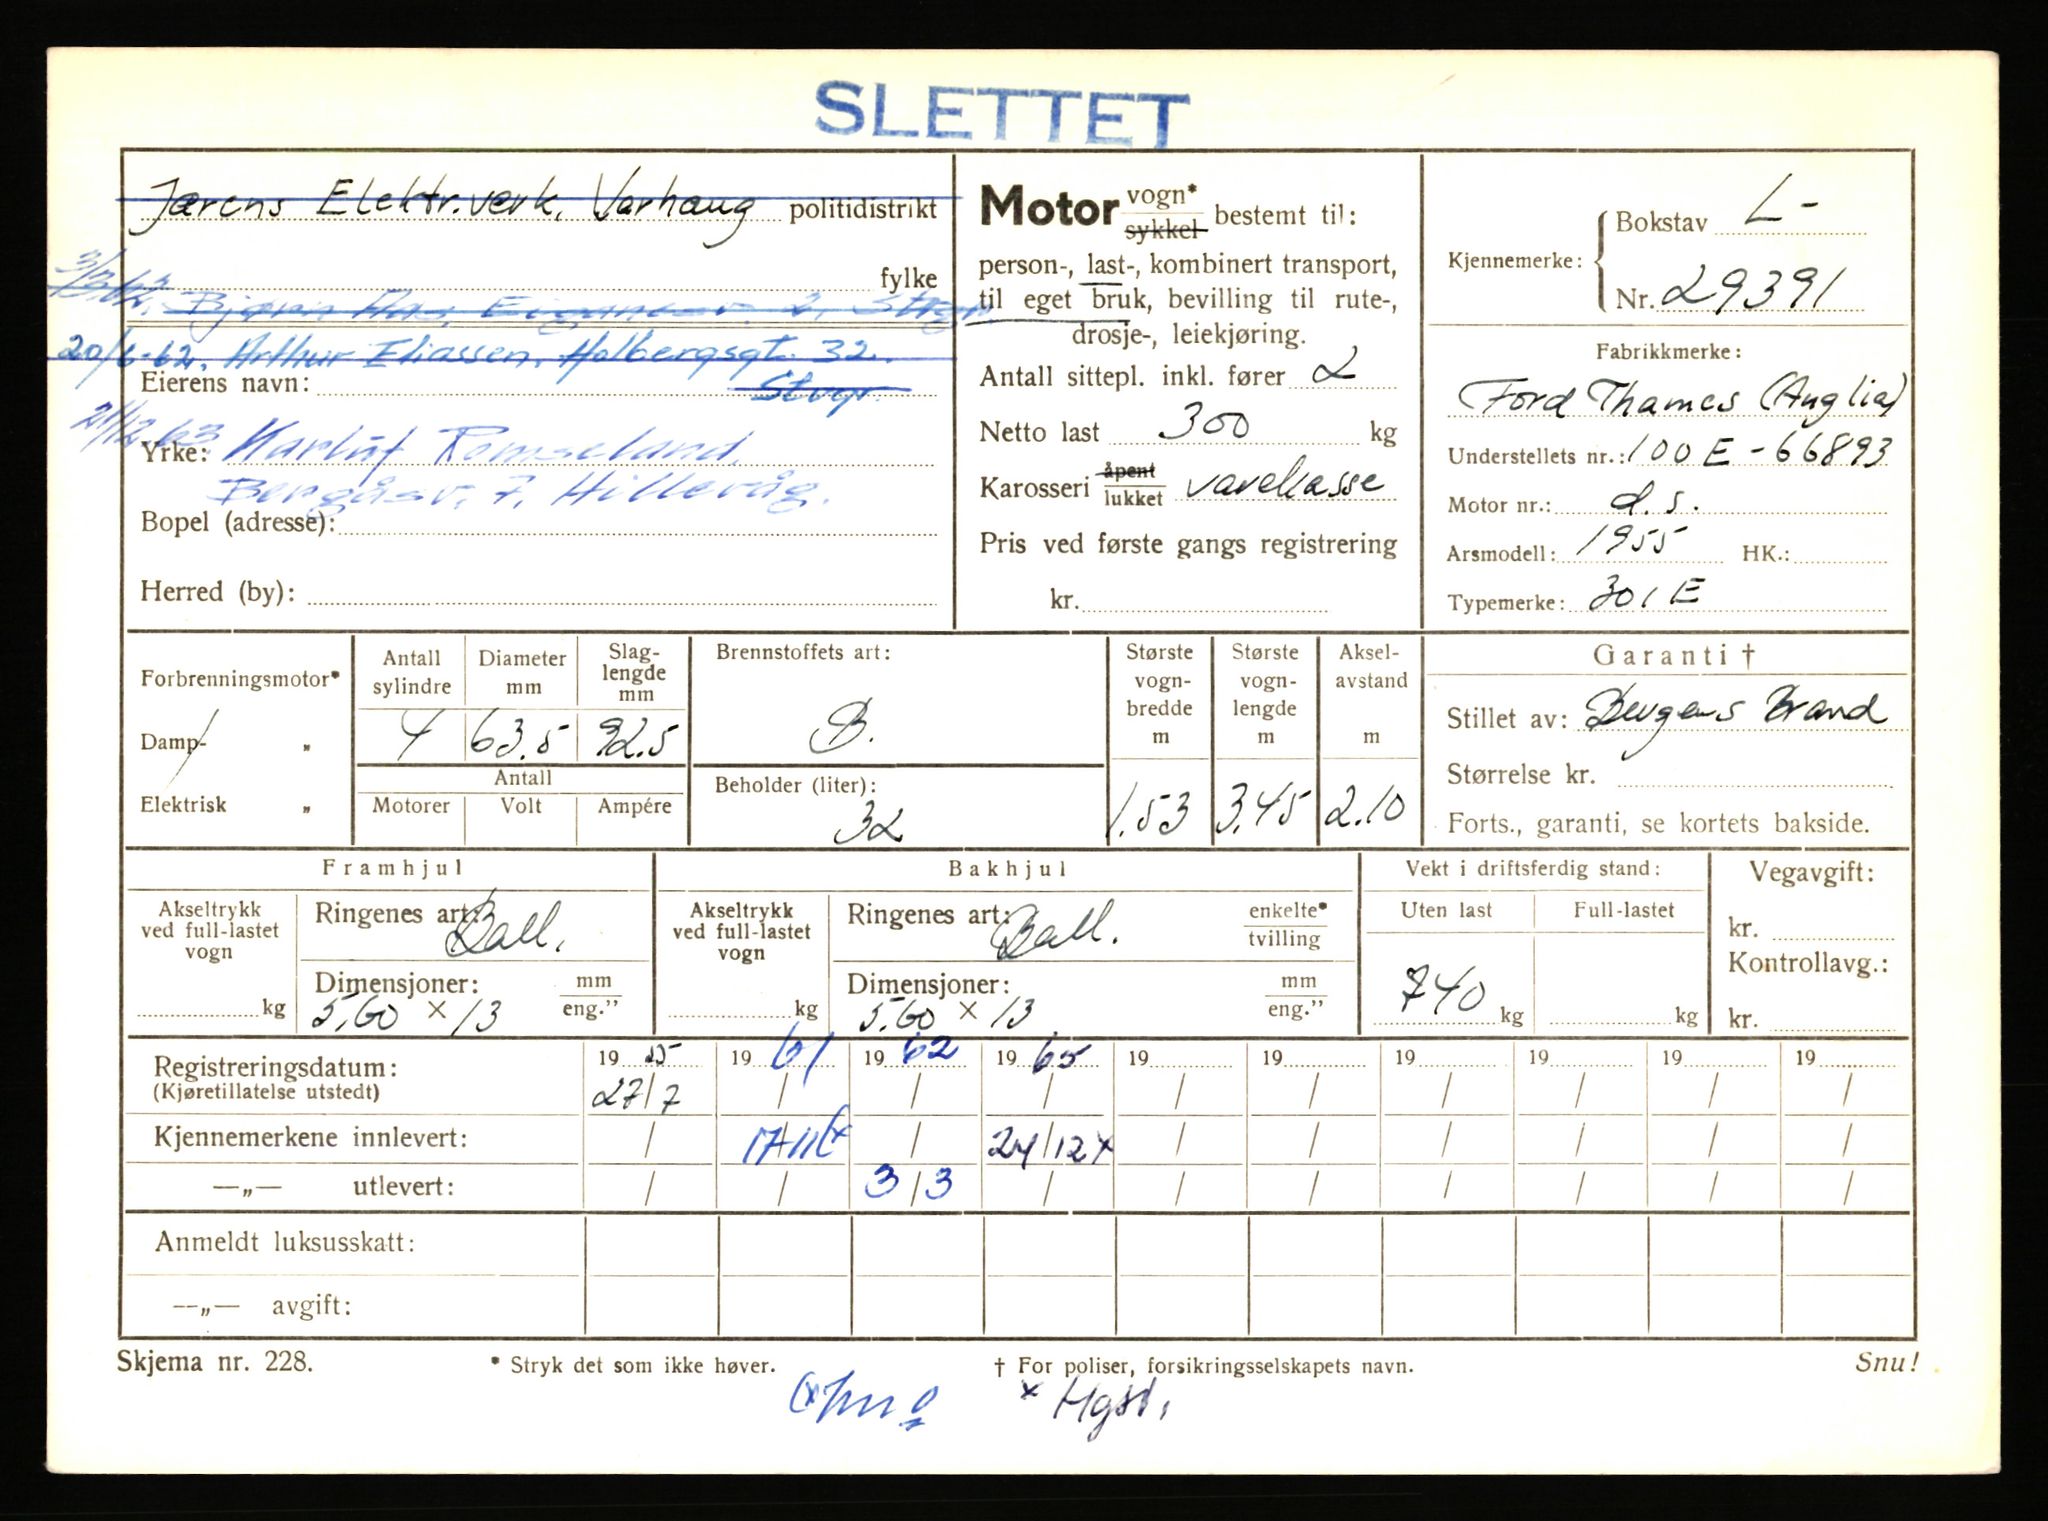 SLETTET
Jærens Elektr.verk, Varhaug politidistrikt
fylke
20/6-62. Arthur Eliassen, Holbergsgt. 32.
Eierens navn: Stvgr.
21/12 63
Yrke: Karluf Romseland,
Bergåsv. 7, Hillevåg.
Bopel (adresse):
Herred (by):
Motor vogn* / sykkel bestemt til:
person-, last-, kombinert transport,
til eget bruk, bevilling til rute-,
drosje-, leiekjøring.
Antall sittepl. inkl. fører 2
Netto last 300 kg
Karosseri åpent / lukket varekasse
Pris ved første gangs registrering
kr.
Kjennemerke: Bokstav L-
Nr. 29391
Fabrikkmerke:
Ford Thames (Anglia)
Understellets nr.: 100E-66893
Motor nr.: d.s.
Arsmodell: 1955 HK.:
Typemerke: 301E
Forbrenningsmotor*
Damp- „
Elektrisk „
Antall sylindre 4
Diameter mm 63.5
Slag-lengde mm 92.5
Antall
Motorer Volt Ampére
Brennstoffets art:
B.
Beholder (liter):
32
Største vogn-bredde m 1.53
Største vogn-lengde m 3.45
Aksel-avstand m 2.10
Garanti †
Stillet av: Bergens Brand
Størrelse kr.
Forts., garanti, se kortets bakside.
Framhjul
Akseltrykk ved full-lastet vogn kg
Ringenes art: Ball.
Dimensjoner: mm / eng.”
5.60 × 13
Bakhjul
Akseltrykk ved full-lastet vogn kg
Ringenes art: Ball. enkelte* / tvilling
Dimensjoner: mm / eng.”
5.60 × 13
Vekt i driftsferdig stand:
Uten last Full-lastet
740 kg kg
Vegavgift:
kr.
Kontrollavg.:
kr.
Registreringsdatum: 19 55 19 61 19 62 19 65 19 19 19 19 19 19
(Kjøretillatelse utstedt) 27/7 / / / / / / / / /
Kjennemerkene innlevert: / 17/11 (x / 24/12 x / / / / / /
—„— utlevert: / / 3/3 / / / / / / /
Anmeldt luksusskatt:
—„— avgift:
Skjema nr. 228. * Stryk det som ikke høver. † For poliser, forsikringsselskapets navn. Snu!
x Hgsd.